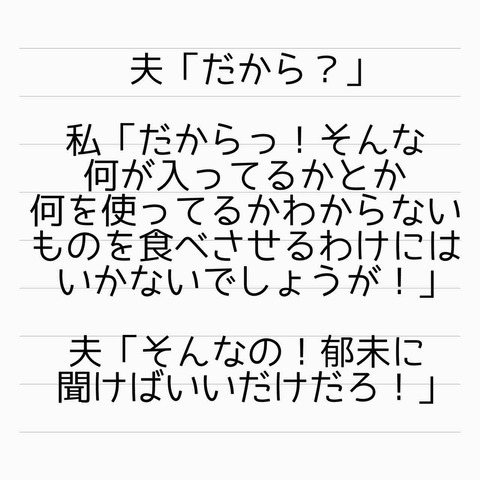 夫「だから？」
私「だからっ！そんな
何が入ってるかとか
何を使ってるかわからない
ものを食べさせるわけには
いかないでしょうが！」
夫「そんなの！郁未に
聞けばいいだけだろ！」